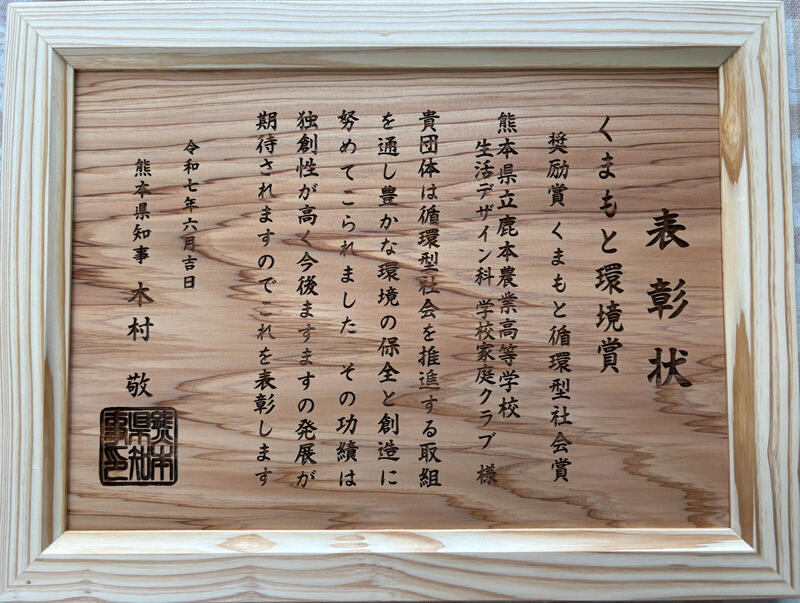 表彰状
くまもと環境賞
奨励賞 くまもと循環型社会賞
熊本県立鹿本農業高等学校
生活デザイン科 学校家庭クラブ 様
貴団体は循環型社会を推進する取組
を通し豊かな環境の保全と創造に
努めてこられました その功績は
独創性が高く今後ますますの発展が
期待されますのでこれを表彰します
令和七年六月吉日
熊本県知事 木村 敬
熊本
県知
事印